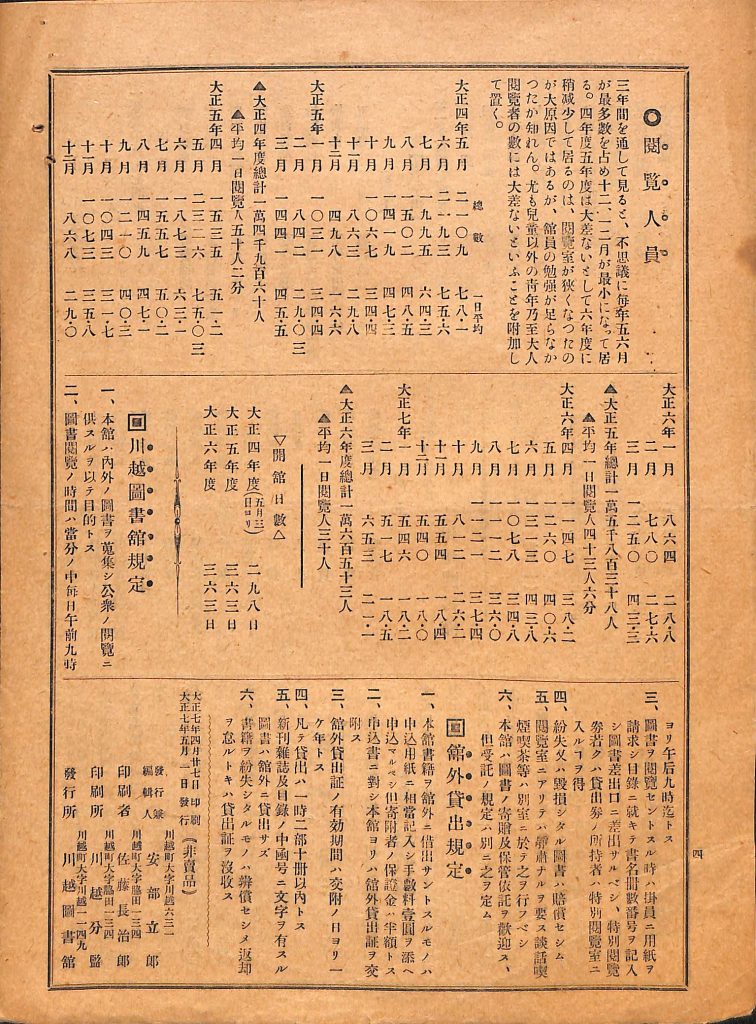 ◎閲覽人員
三年間を通して見ると、不思議に毎年五六月
が最多數を占め十二、一二月が最小になつて居
る。四年度五年度は大差ないとして六年度に
稍減少して居るのは、閲覽室が狹くなつたの
が大原因ではあるが、館員の勉强が足らなか
つたか知れん。尤も兒童以外の青年乃至大人
閲覽者の數には大差ないといふことを附加し
て置く。
總數 一日平均
大正四年五月 二一〇九 七八・一
六月 二一九三 七五・六
七月 一九九五 六四・三
八月 一五〇二 四八・五
九月 一四一九 四七・三
十月 一〇六七 三四・四
十一月 八六三 二九・八
十二月 四九八 一六・六
大正五年一月 一〇三一 三四・四
二月 八四二 二九・〇三
三月 一四四一 四五・五
▲大正四年度總計一萬四千九百六十人
▲平均一日閲覽人五十人二分
大正五年四月 一五三五 五一・二
五月 二三二六 七五・〇三
六月 一八七三 六三・一
七月 一五五七 五〇・二
八月 一四五九 四七・一
九月 一二一〇 四〇・三
十月 一〇四三 三一・七
十一月 一〇七三 三五・八
十二月 八六八 二九・〇
大正六年一月 八六四 二八・八
二月 七八〇 二七・六
三月 一二五〇 四三・三
▲大正五年總計一萬五千八百三十八人
▲平均一日閲覽人四十三人六分
大正六年四月 一一四七 三八・二
五月 一二六〇 四〇・六
六月 一三一三 四三・八
七月 一〇七八 三四・八
八月 一一一二 三六・〇
九月 一一二一 三七・四
十月 八一二 二六・二
十一月 五五四 一八・四
十二月 五四〇 一八・〇
大正七年一月 五四六 一八・二
二月 五一七 一八・五
三月 六五三 二一・一
▲大正六年度總計一萬六百五十三人
▲平均一日閲覽人三十人
▽開館日數△
大正四年度(五月三日ヨリ) 二九八日
大正五年度 三六三日
大正六年度 三六三日
回川越圖書舘規定
一、本館ハ內外ノ圖書ヲ蒐集シ公衆ノ閲覽ニ
供スルヲ以テ目的トス
二、圖書閲覽ノ時間ハ當分ノ中每日午前九時
ヨリ午后九時迄トス
三、圖書ヲ閲覽セントスル時ハ掛員ニ用紙ヲ
請求シ目錄ニ就キテ書名册數番号ヲ記入
シ圖書差出口ニ差出サルベシ、特別閲覽
券若クハ貸出券ノ所持者ハ特別閲覽室ニ
入ルコヲ得
四、紛失又ハ毀損シタル圖書ハ賠償セシム
五、閲覽室ニアリテハ靜肅ナルヲ要ス談話喫
煙喫茶等ハ別室ニ於テ之ヲ行フベシ
六、本館ハ圖書ノ寄贈及保管依託ヲ歡迎ス、
但受託ノ規定ハ別ニ之ヲ定ム
回舘外貸出規定
一、本館書籍ヲ館外ニ借出サントスルモノハ
申込用紙ニ相當記入シ手數料壹圓ヲ添ヘ
申込マルベシ但寄附者ノ保證金ハ半額トス
二、申込書ニ對シ本館ヨリハ館外貸出証ヲ交
附ス
三、館外貸出証ノ有効期間ハ交附ノ日ヨリ一
ケ年トス
四、凡テ貸出ハ一時二部十册以內トス
五、新刊雜誌及目錄ノ中國号ニ文字ヲ有スル
圖書ハ館外ニ貸出サズ
六、書籍ヲ紛失シタルモノハ辨償セシメ返却
ヲ怠ルトキハ貸出証ヲ沒收ス
大正七年四月廿七日印刷
大正七年五月一日發行
(非賣品)
川越町大字川越六三一
發行兼編輯人 安部立郎
川越町大字脇田一三四
印刷者 佐藤長治郎
川越町大字脇田一三四
印刷所 川越分監
川越町大字川越一一四九
發行所 川越圖書舘
四